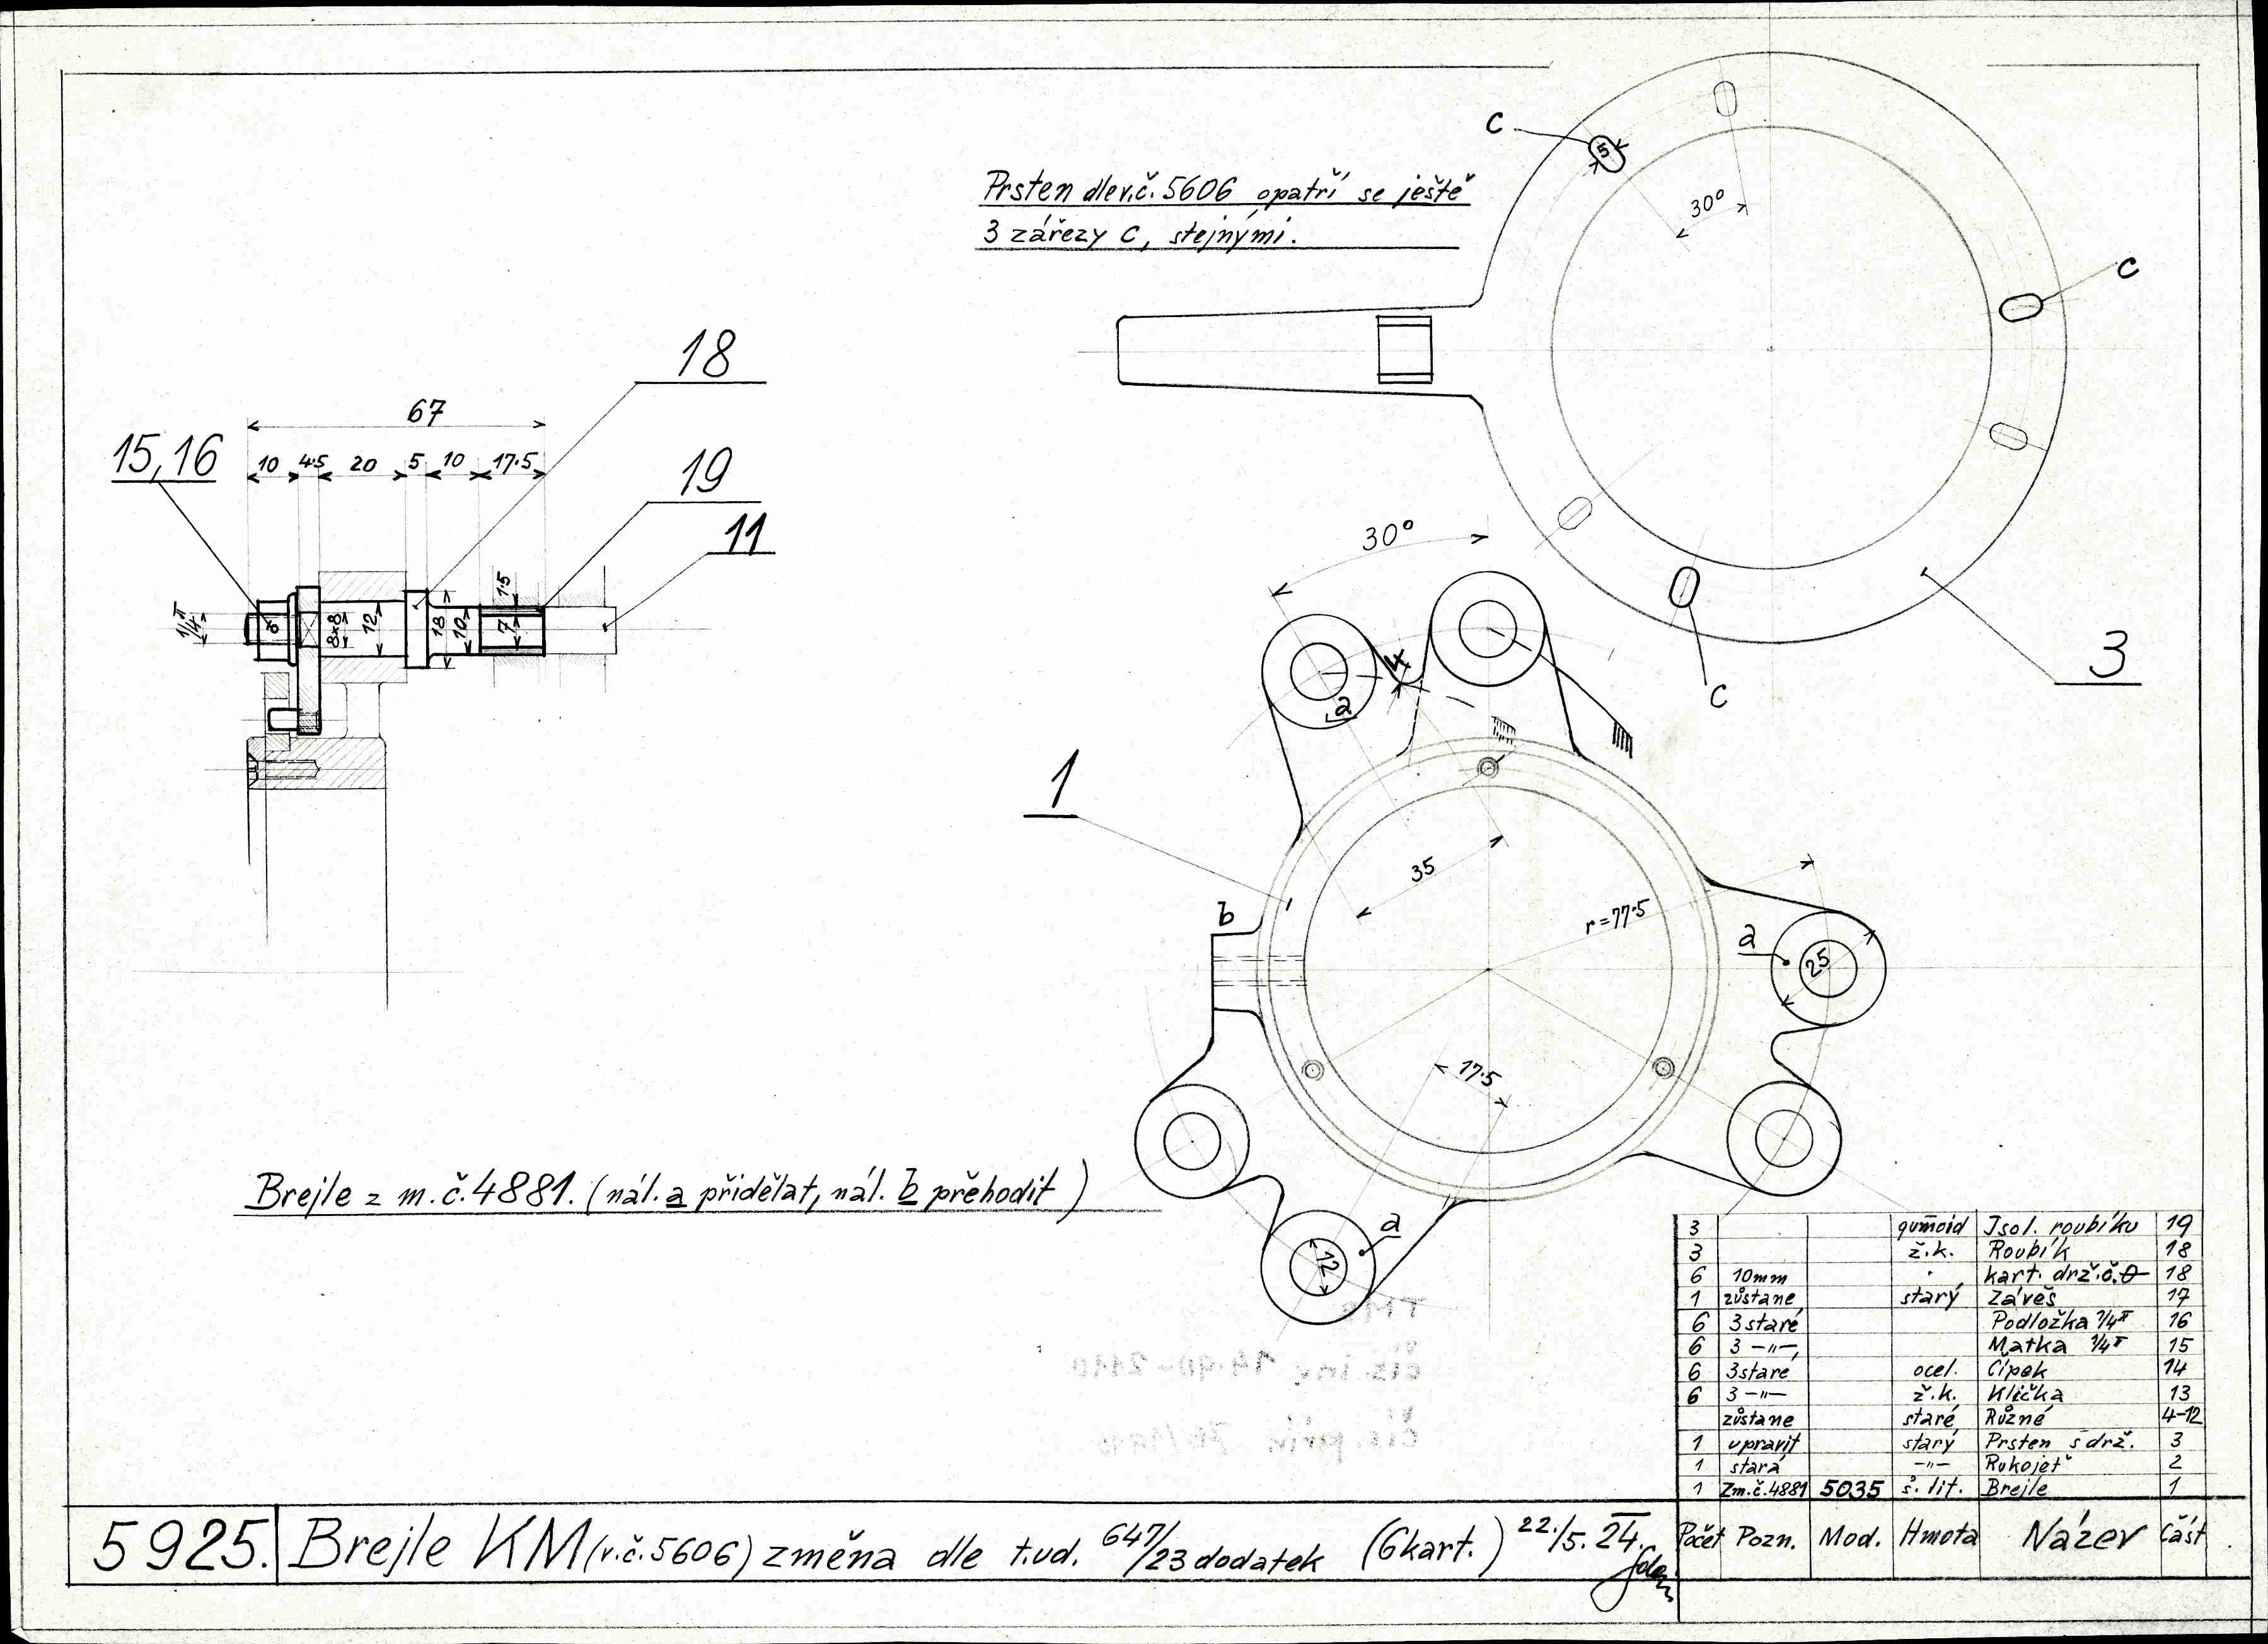 Prsten dle v.č. 5606 opatří se ještě
3 zářezy c, stejnými.
c
5
30°
c
c
3
18
67
15,16
10 4·5 20 5 10 17·5
19
11
1·5
1/4"
8
8x8
12
18
10
7
30°
4
a
1
35
b
r=77·5
a
25
17·5
a
12
Brejle z m.č. 4881. (nál. a přidělat, nál. b přehodit)
TMS
čís. inv.
čís. přív.
3 gumoid Isol. roubíku 19
3 ž.k. Roubík 18
6 10mm kart. drž. č. 0 18
1 zůstane starý Závěs 17
6 3 staré Podložka 1/4" 16
6 3 —"— Matka 1/4" 15
6 3 staré ocel. Čípek 14
6 3 —"— ž.k. Klička 13
zůstane staré Různé 4-12
1 upravit starý Prsten s drž. 3
1 stará —"— Rukojeť 2
1 Zm.č. 4881 5035 š. lit. Brejle 1
Počet Pozn. Mod. Hmota Název Část
5925. Brejle KM (v.č. 5606) změna dle t.ud. 647/23 dodatek (6kart.) 22./5. 24.